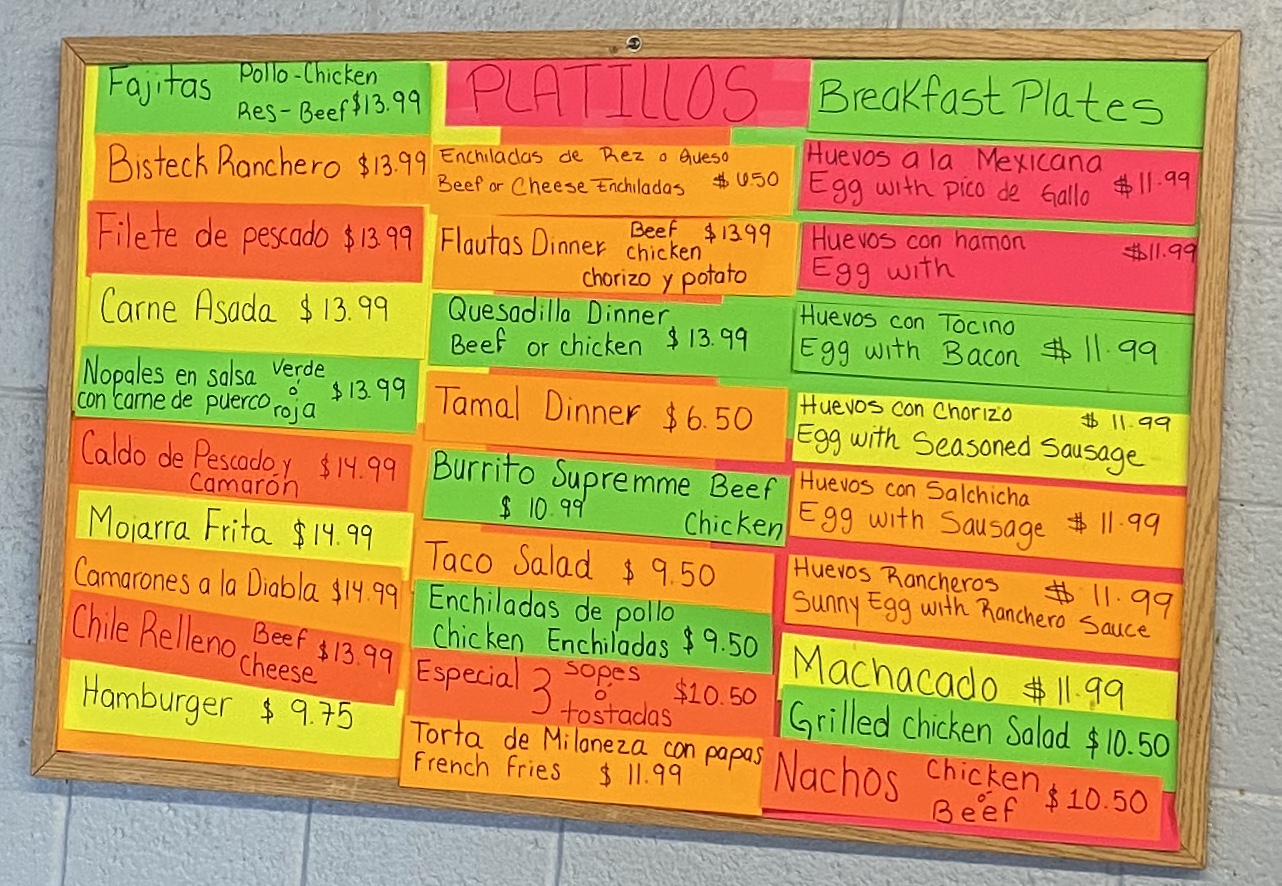 Fajitas Pollo-Chicken
Res-Beef $13.99
Bisteck Ranchero $13.99
Filete de pescado $13.99
Carne Asada $13.99
Nopales en salsa verde
con carne de puerco ó roja $13.99
Caldo de Pescado y
Camarón $14.99
Mojarra Frita $14.99
Camarones a la Diabla $14.99
Chile Relleno Beef
Cheese $13.99
Hamburger $9.75
PLATILLOS
Enchiladas de Rez o Queso
Beef or Cheese Enchiladas $6.50
Flautas Dinner Beef $13.99
chicken
chorizo y potato
Quesadilla Dinner
Beef or chicken $13.99
Tamal Dinner $6.50
Burrito Supremme Beef
$10.99 Chicken
Taco Salad $9.50
Enchiladas de pollo
Chicken Enchiladas $9.50
Especial 3 sopes
ó $10.50
tostadas
Torta de Milaneza con papas
French Fries $11.99
Breakfast Plates
Huevos a la Mexicana
Egg with pico de Gallo $11.99
Huevos con hamon $11.99
Egg with
Huevos con Tocino
Egg with Bacon $11.99
Huevos con Chorizo $11.99
Egg with Seasoned Sausage
Huevos con Salchicha
Egg with Sausage $11.99
Huevos Rancheros $11.99
Sunny Egg with Ranchero Sauce
Machacado $11.99
Grilled chicken Salad $10.50
Nachos Chicken
ó $10.50
Beef